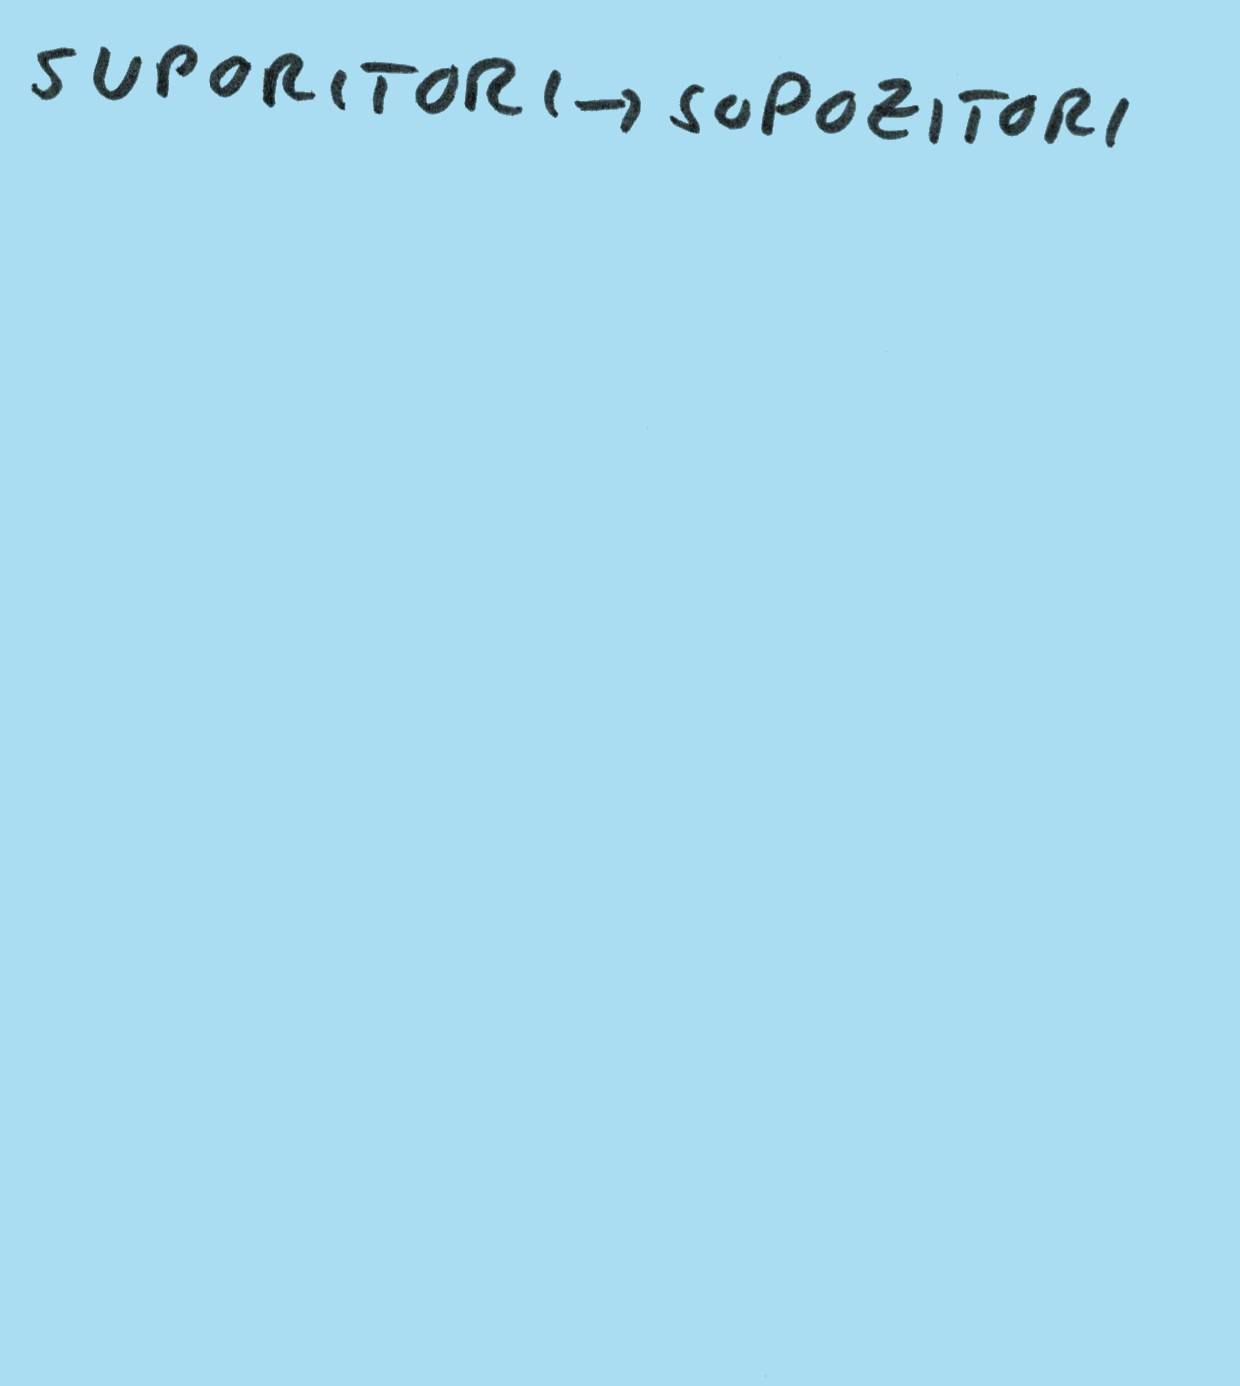 SUPORITORI → SUPOZITORI